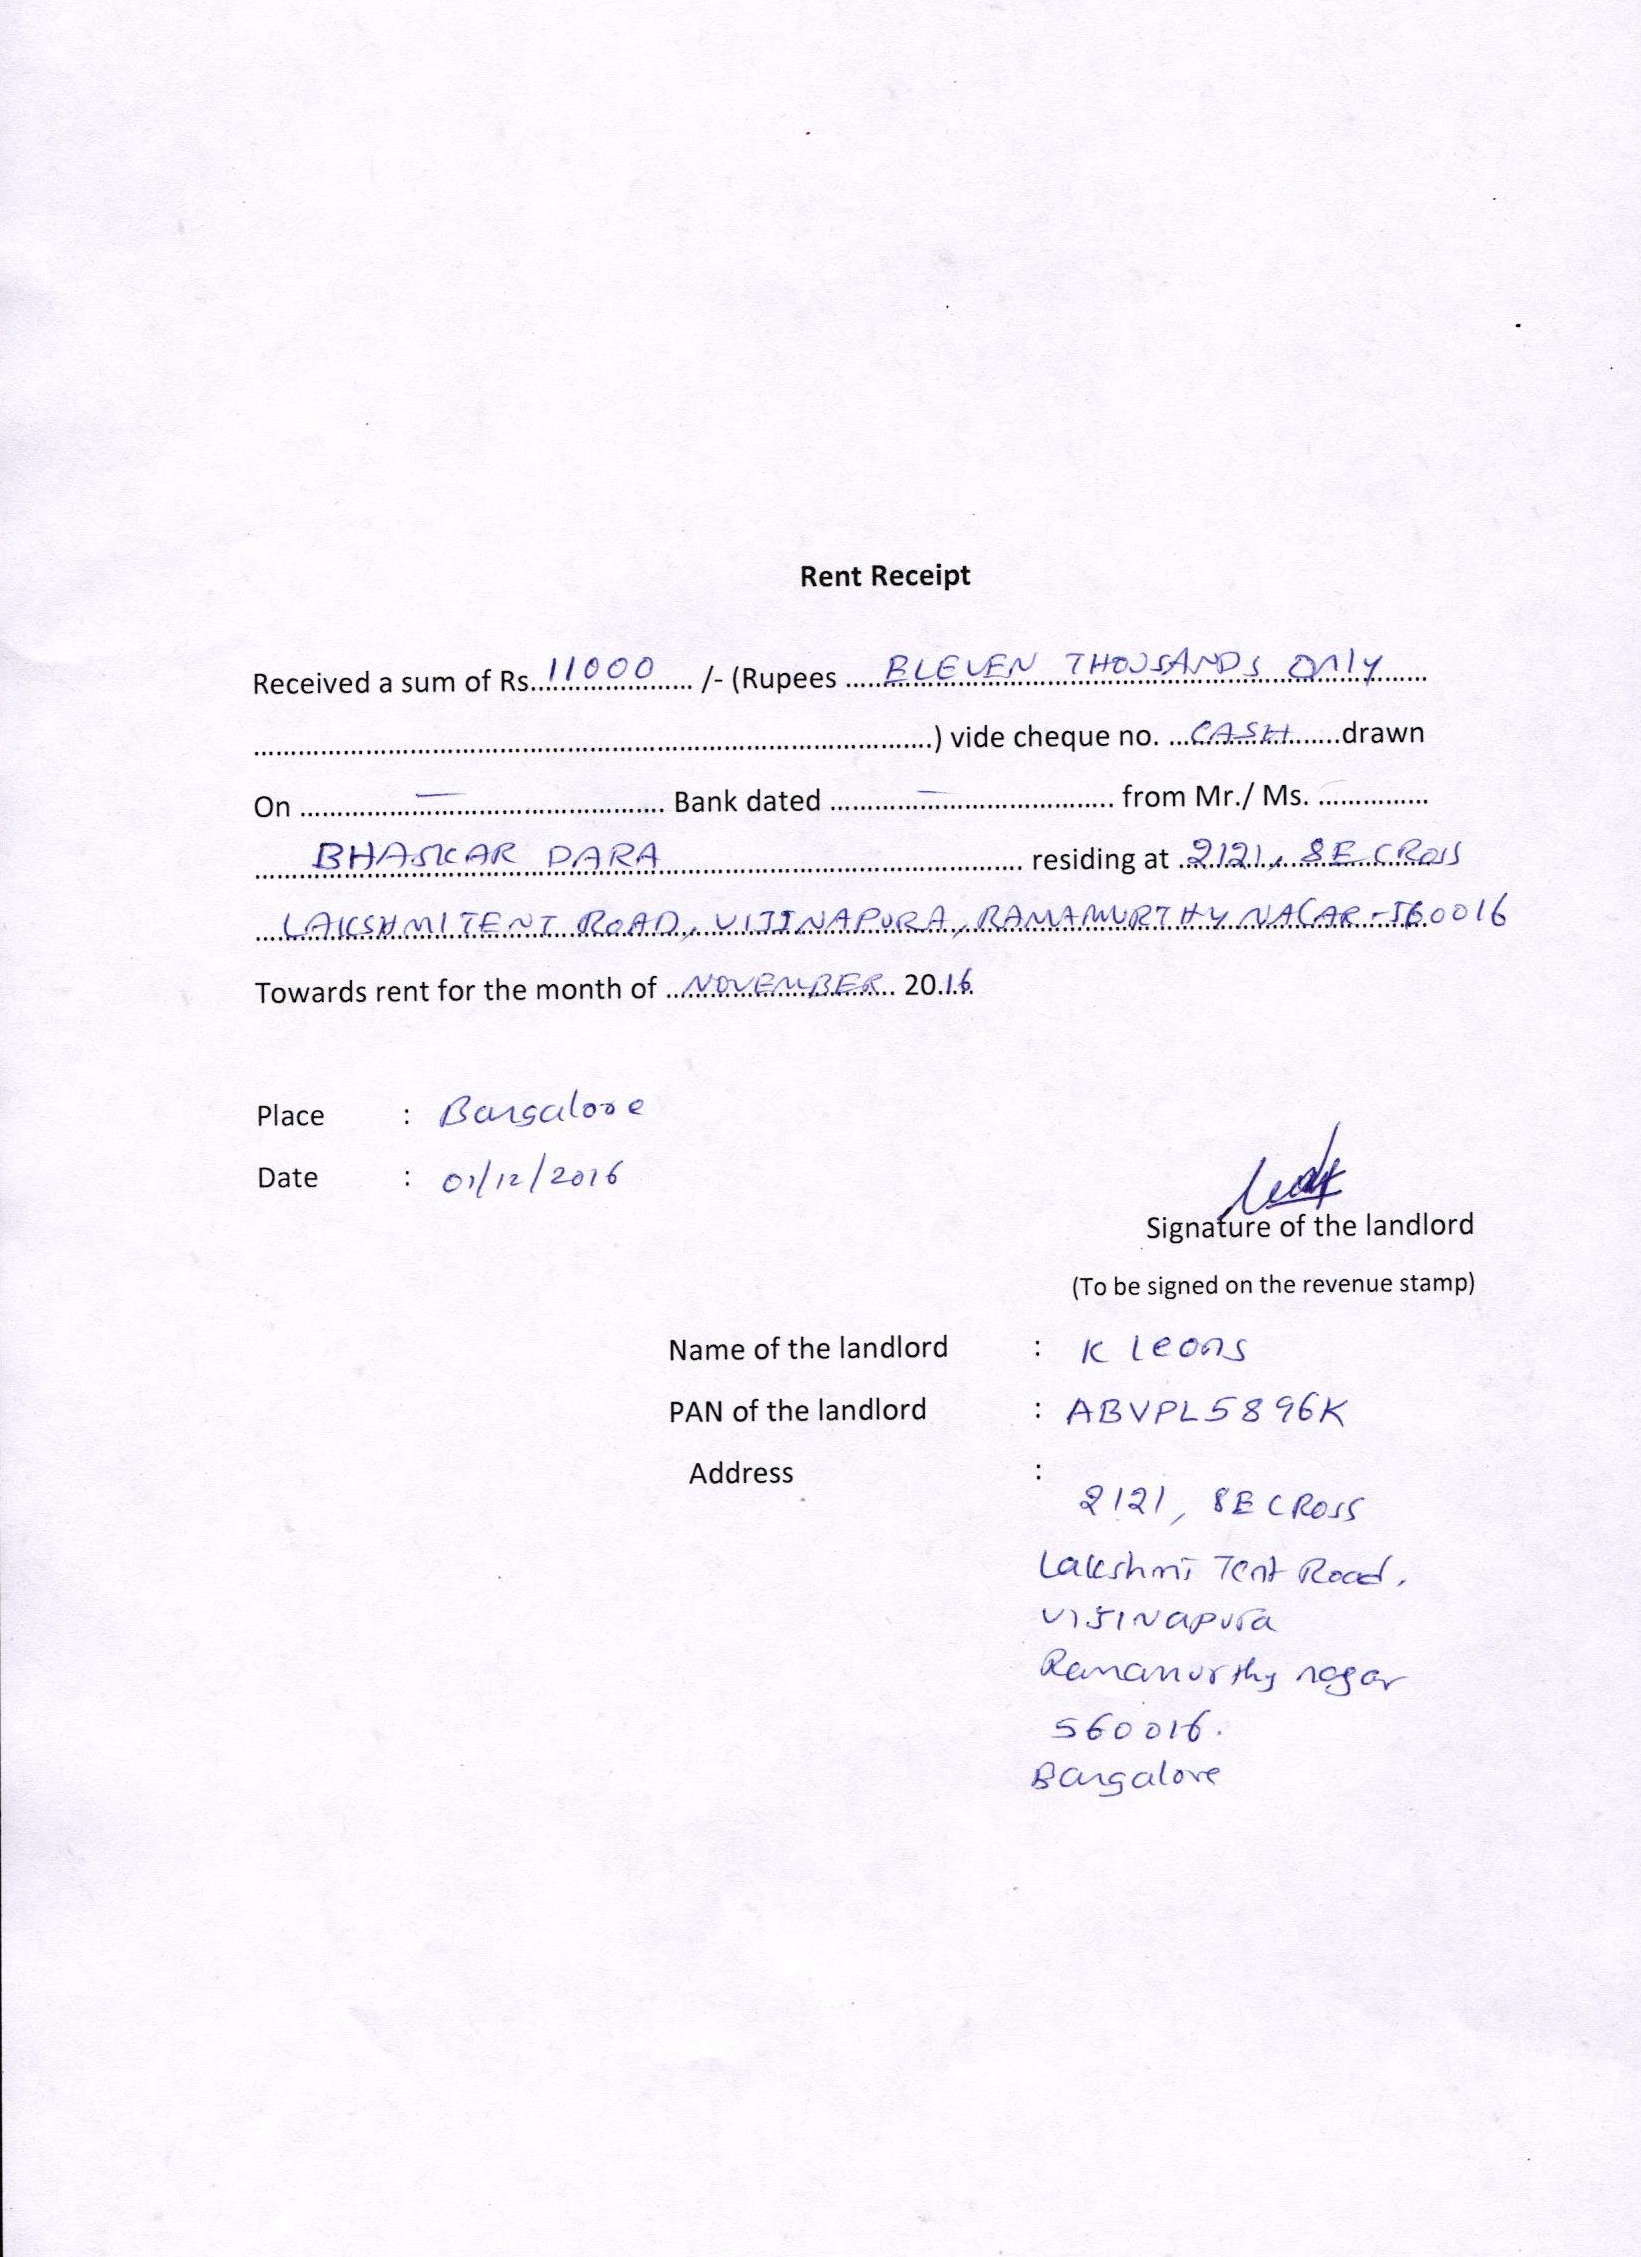 Rent Receipt
Received a sum of Rs. 11000 /- (Rupees ELEVEN THOUSANDS Only
) vide cheque no. CASH drawn
On — Bank dated — from Mr./ Ms.
BHASKAR DARA residing at 2121, 8E CROSS
LAKSHMI TENT ROAD, VIJINAPURA, RAMAMURTHY NAGAR - 560016
Towards rent for the month of NOVEMBER 2016
Place : Bangalore
Date : 01/12/2016
Signature of the landlord
(To be signed on the revenue stamp)
Name of the landlord : K Leons
PAN of the landlord : ABVPL5896K
Address :
2121, 8E CROSS
Lakshmi Tent Road,
VIJINapura
Ramamurthy nagar
560016.
Bangalore